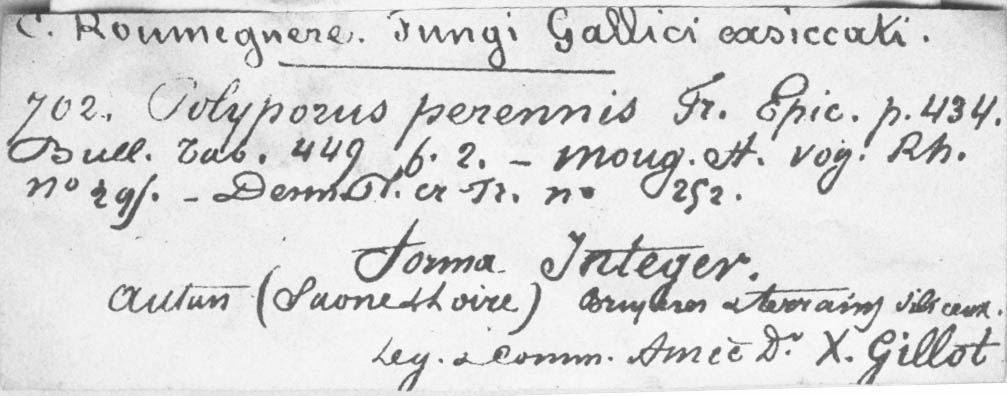 C. Roumeguere. Fungi Gallici exsiccati.
702. Polyporus perennis Fr. Epic. p. 434.
Bull. Tab. 449 f. 2. – Moug. St. vog. Rh.
no 295. – Desm. Pl. cr. Fr. no 252.
Forma Integer.
Autun (Saone & Loire) Bruyeres & terrains siliceux.
Leg. & comm. Amicé Dr. X. Gillot